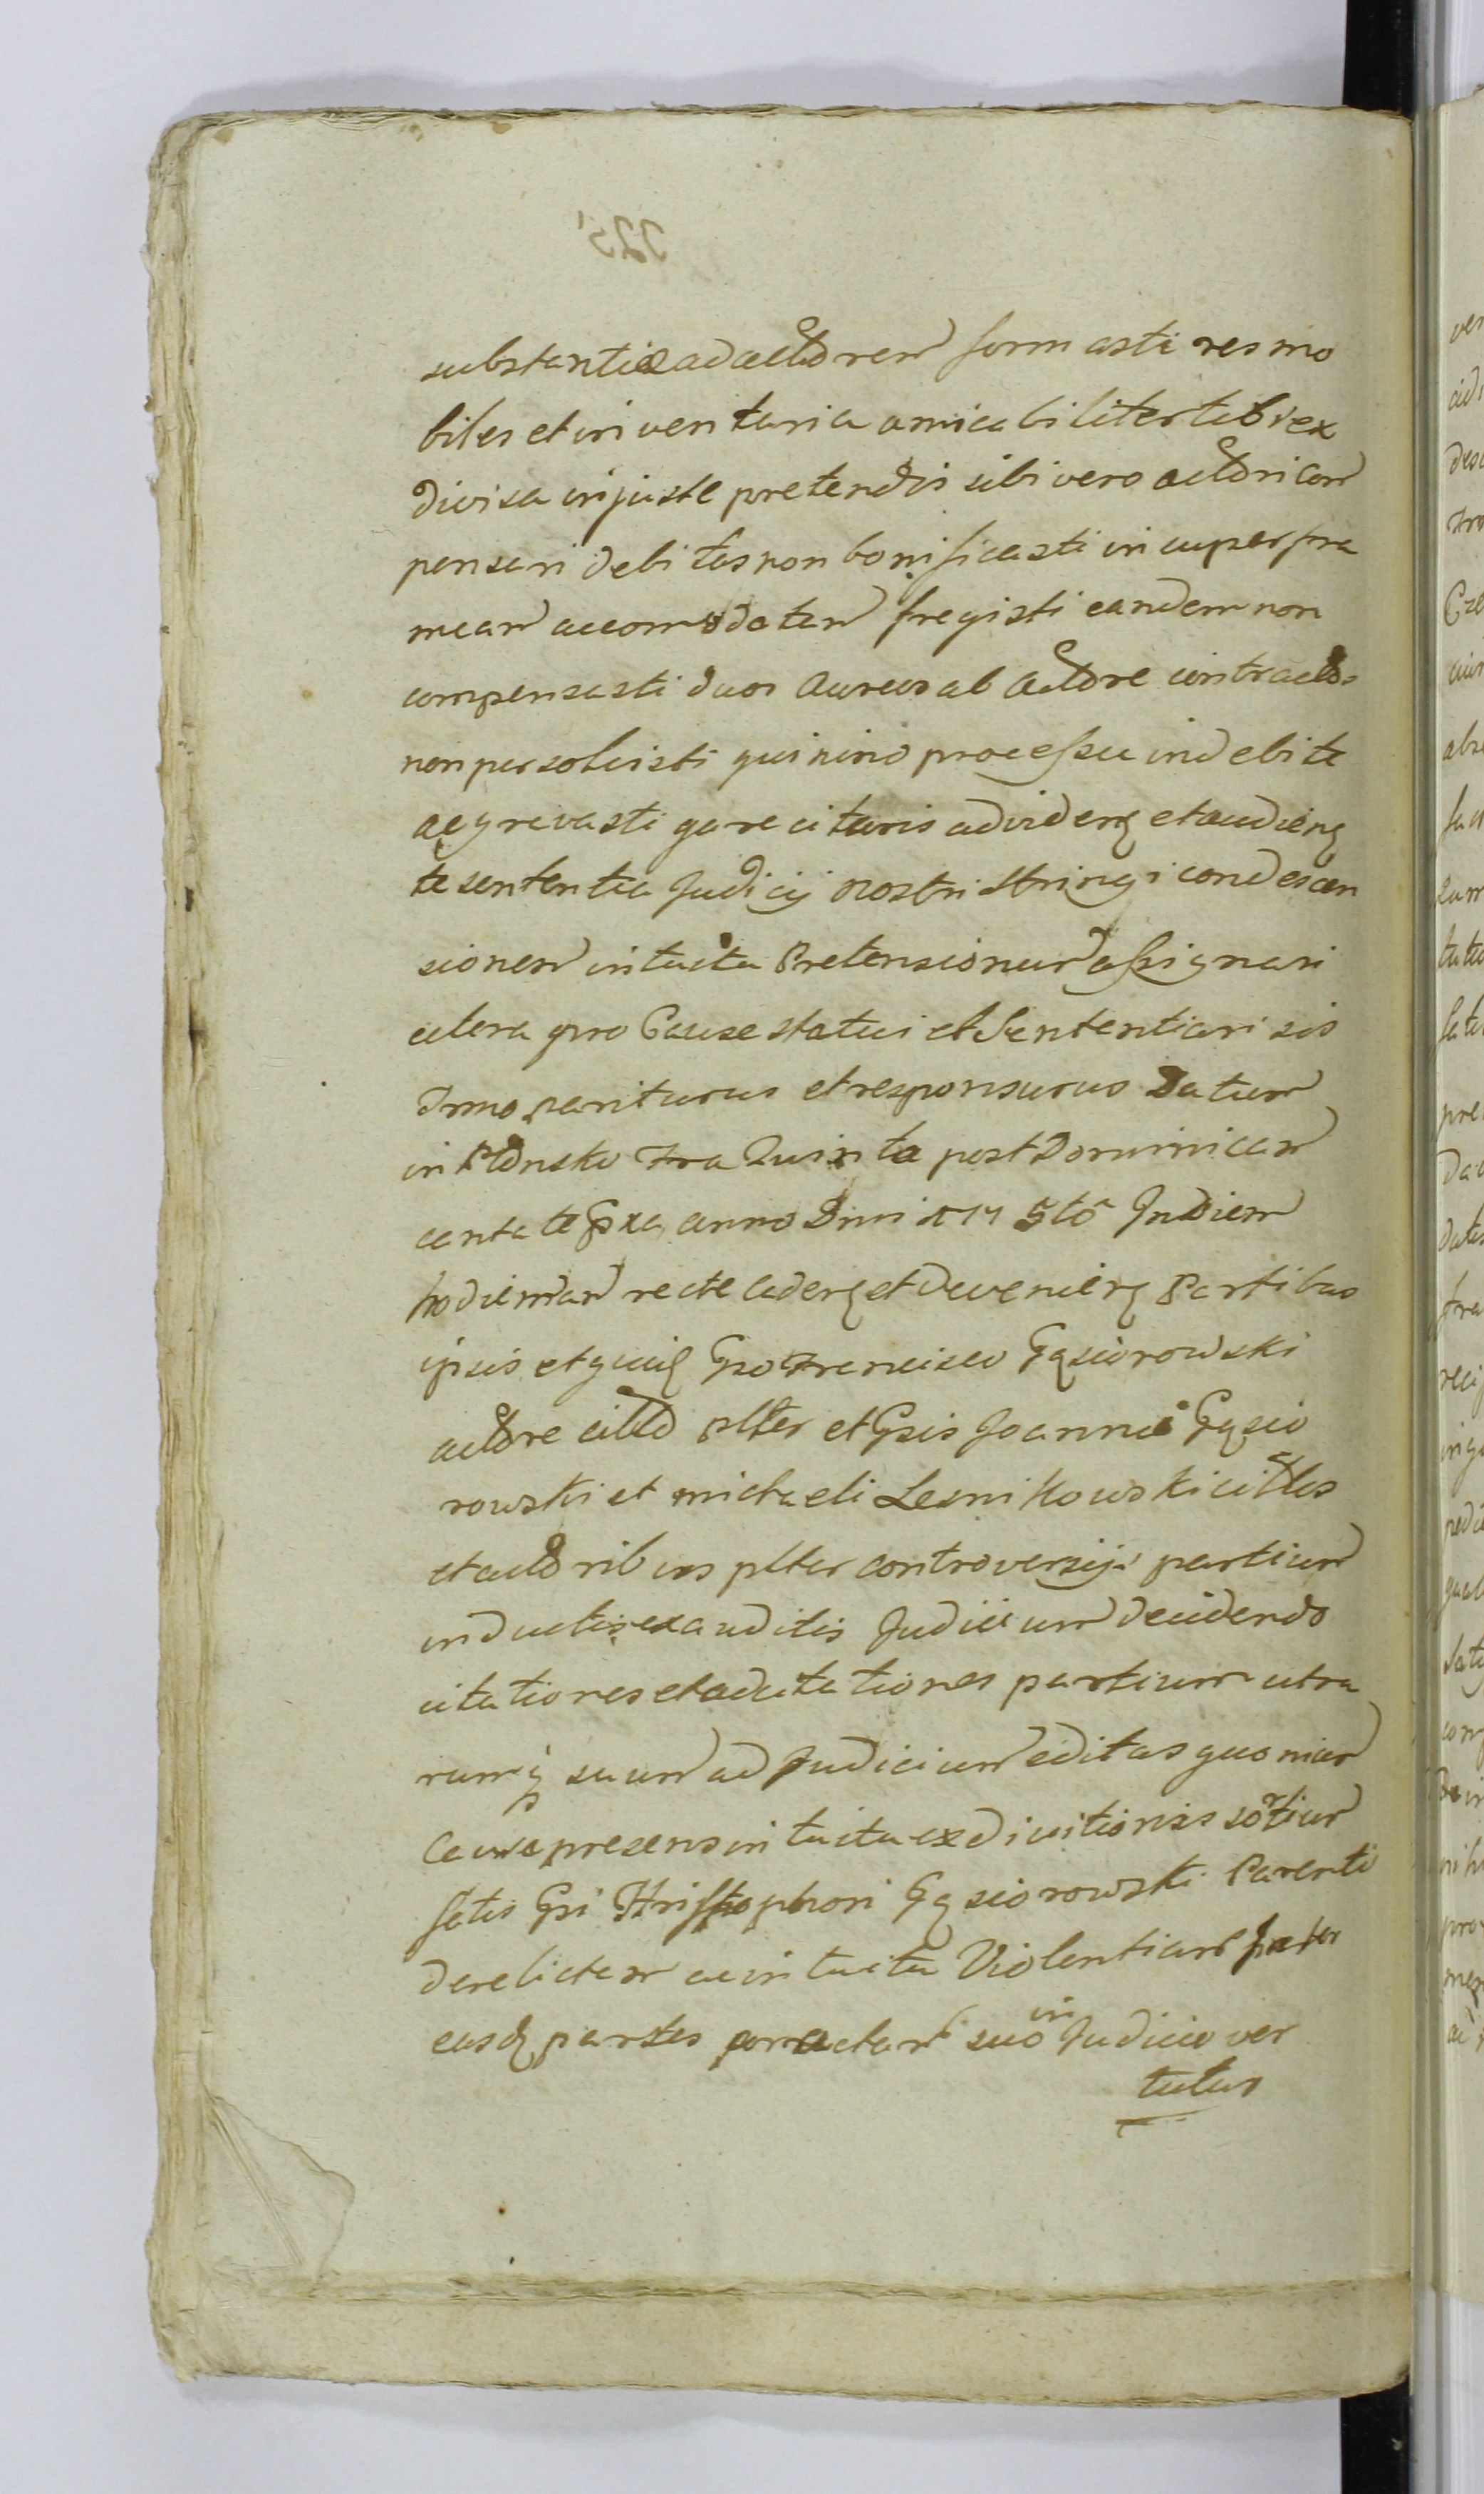 substantiae ad actorem formasti res mo
biles et inventaria amicabiliter tibi ex
divisa injuste pretendis sibi vero actori com
pensari debitas non bonificasti in super fra
meam accomodatam fregisti eandem non
compensasti duos aureos ab actore contractos
non persolvisti quinimo processu indebite
aggravasti quare citaris ad videnq et audienq
te sententia Judicij nostri stringi condescen
sionem intuitu Pretensionum assignari
cetera pro Causae statui et Sententiari sis
Tmno pariturus et responsurus Datum
in Płonsko Fra Quinta post Dominicam
cantate Pxa anno Dni 177 5to In Diem
hodiernam recte cadenq et devenienq Partibus
ipsis et quidq Gso Francisco Gąsiorowski
actore citto plter et Gsis Joanni Gąsio
rowski et Michaeli Lesnikowski cittes
et actoribus plter controversijs partium
inductis exauditis Judicium decidendo
citationes et adcitationes partium utra
rumq suum ad Judicium editas quoniam
Causa presens intuitu exdivitionis sortium
fatis Gsi Khristophori Gąsiorowski Parenti
derelictam ac intuitu Violentiarum inter
easdq partes patratarum suo in Judicio ver
tutur